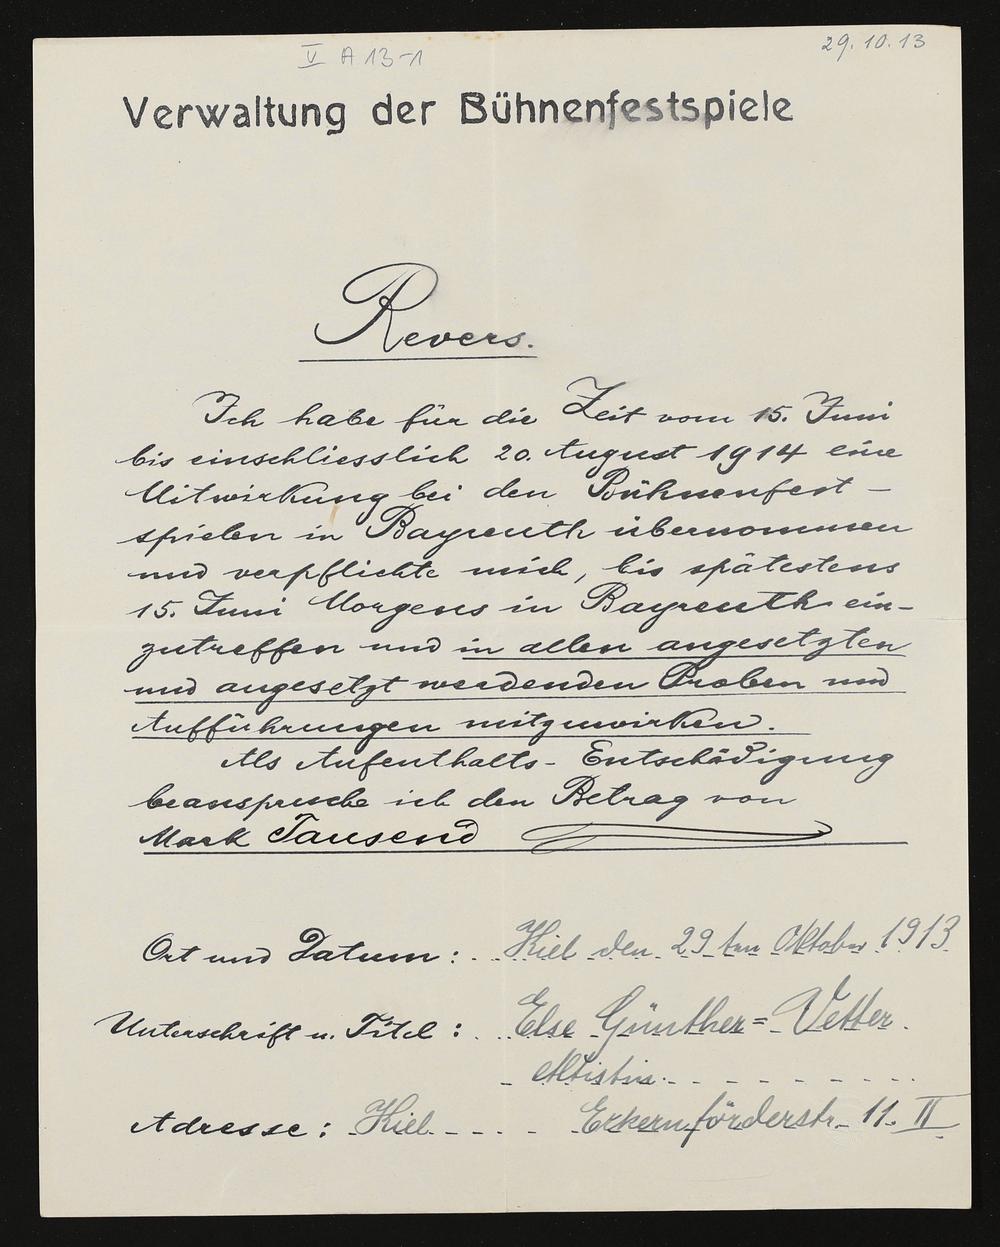 V A 13-1
29.10.13
Verwaltung der Bühnenfestspiele
Revers.
Ich habe für die Zeit vom 15. Juni
bis einschliesslich 20. August 1914 eine
Mitwirkung bei den Bühnenfest-
spielen in Bayreuth übernommen
und verpflichte mich, bis spätestens
15. Juni Morgens in Bayreuth ein-
zutreffen und in allen angesetzten
und angesetzt werdenden Proben und
Aufführungen mitzuwirken.
Als Aufenthalts-Entschädigung
beanspruche ich den Betrag von
Mark Tausend
Ort und Datum: Kiel den 29ten Oktober 1913
Unterschrift u. Titel: Else Günther=Vetter.
Altistin.
Adresse: Kiel Eckernförderstr. 11. II